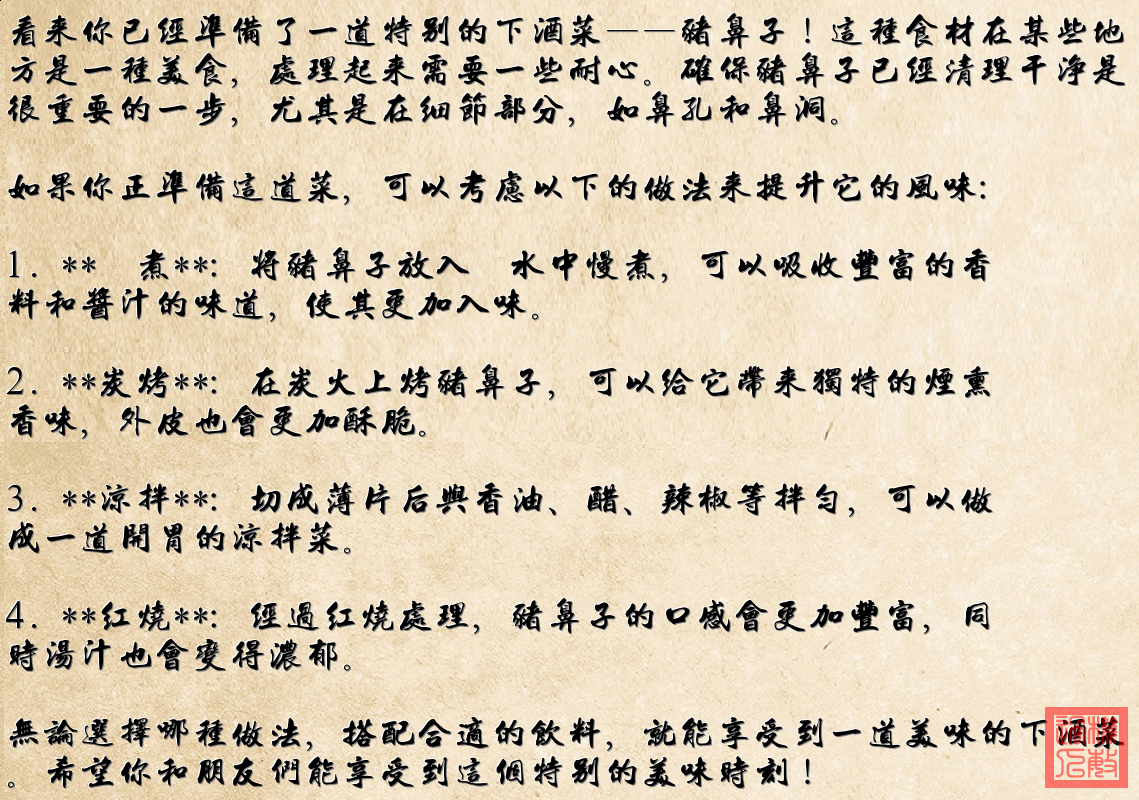 看来你已經準備了一道特别的下酒菜——豬鼻子！這種食材在某些地
方是一種美食，處理起来需要一些耐心。確保豬鼻子已經清理干净是
很重要的一步，尤其是在细節部分，如鼻孔和鼻洞。
如果你正準備這道菜，可以考慮以下的做法来提升它的風味：
1. ** 煮**：將豬鼻子放入 水中慢煮，可以吸收豐富的香
料和醬汁的味道，使其更加入味。
2. **炭烤**：在炭火上烤豬鼻子，可以给它帶来獨特的煙熏
香味，外皮也會更加酥脆。
3. **涼拌**：切成薄片后與香油、醋、辣椒等拌匀，可以做
成一道開胃的涼拌菜。
4. **红燒**：經過红燒處理，豬鼻子的口感會更加豐富，同
時湯汁也會變得濃郁。
無論選擇哪種做法，搭配合適的飲料，就能享受到一道美味的下酒菜
。希望你和朋友們能享受到這個特别的美味時刻！